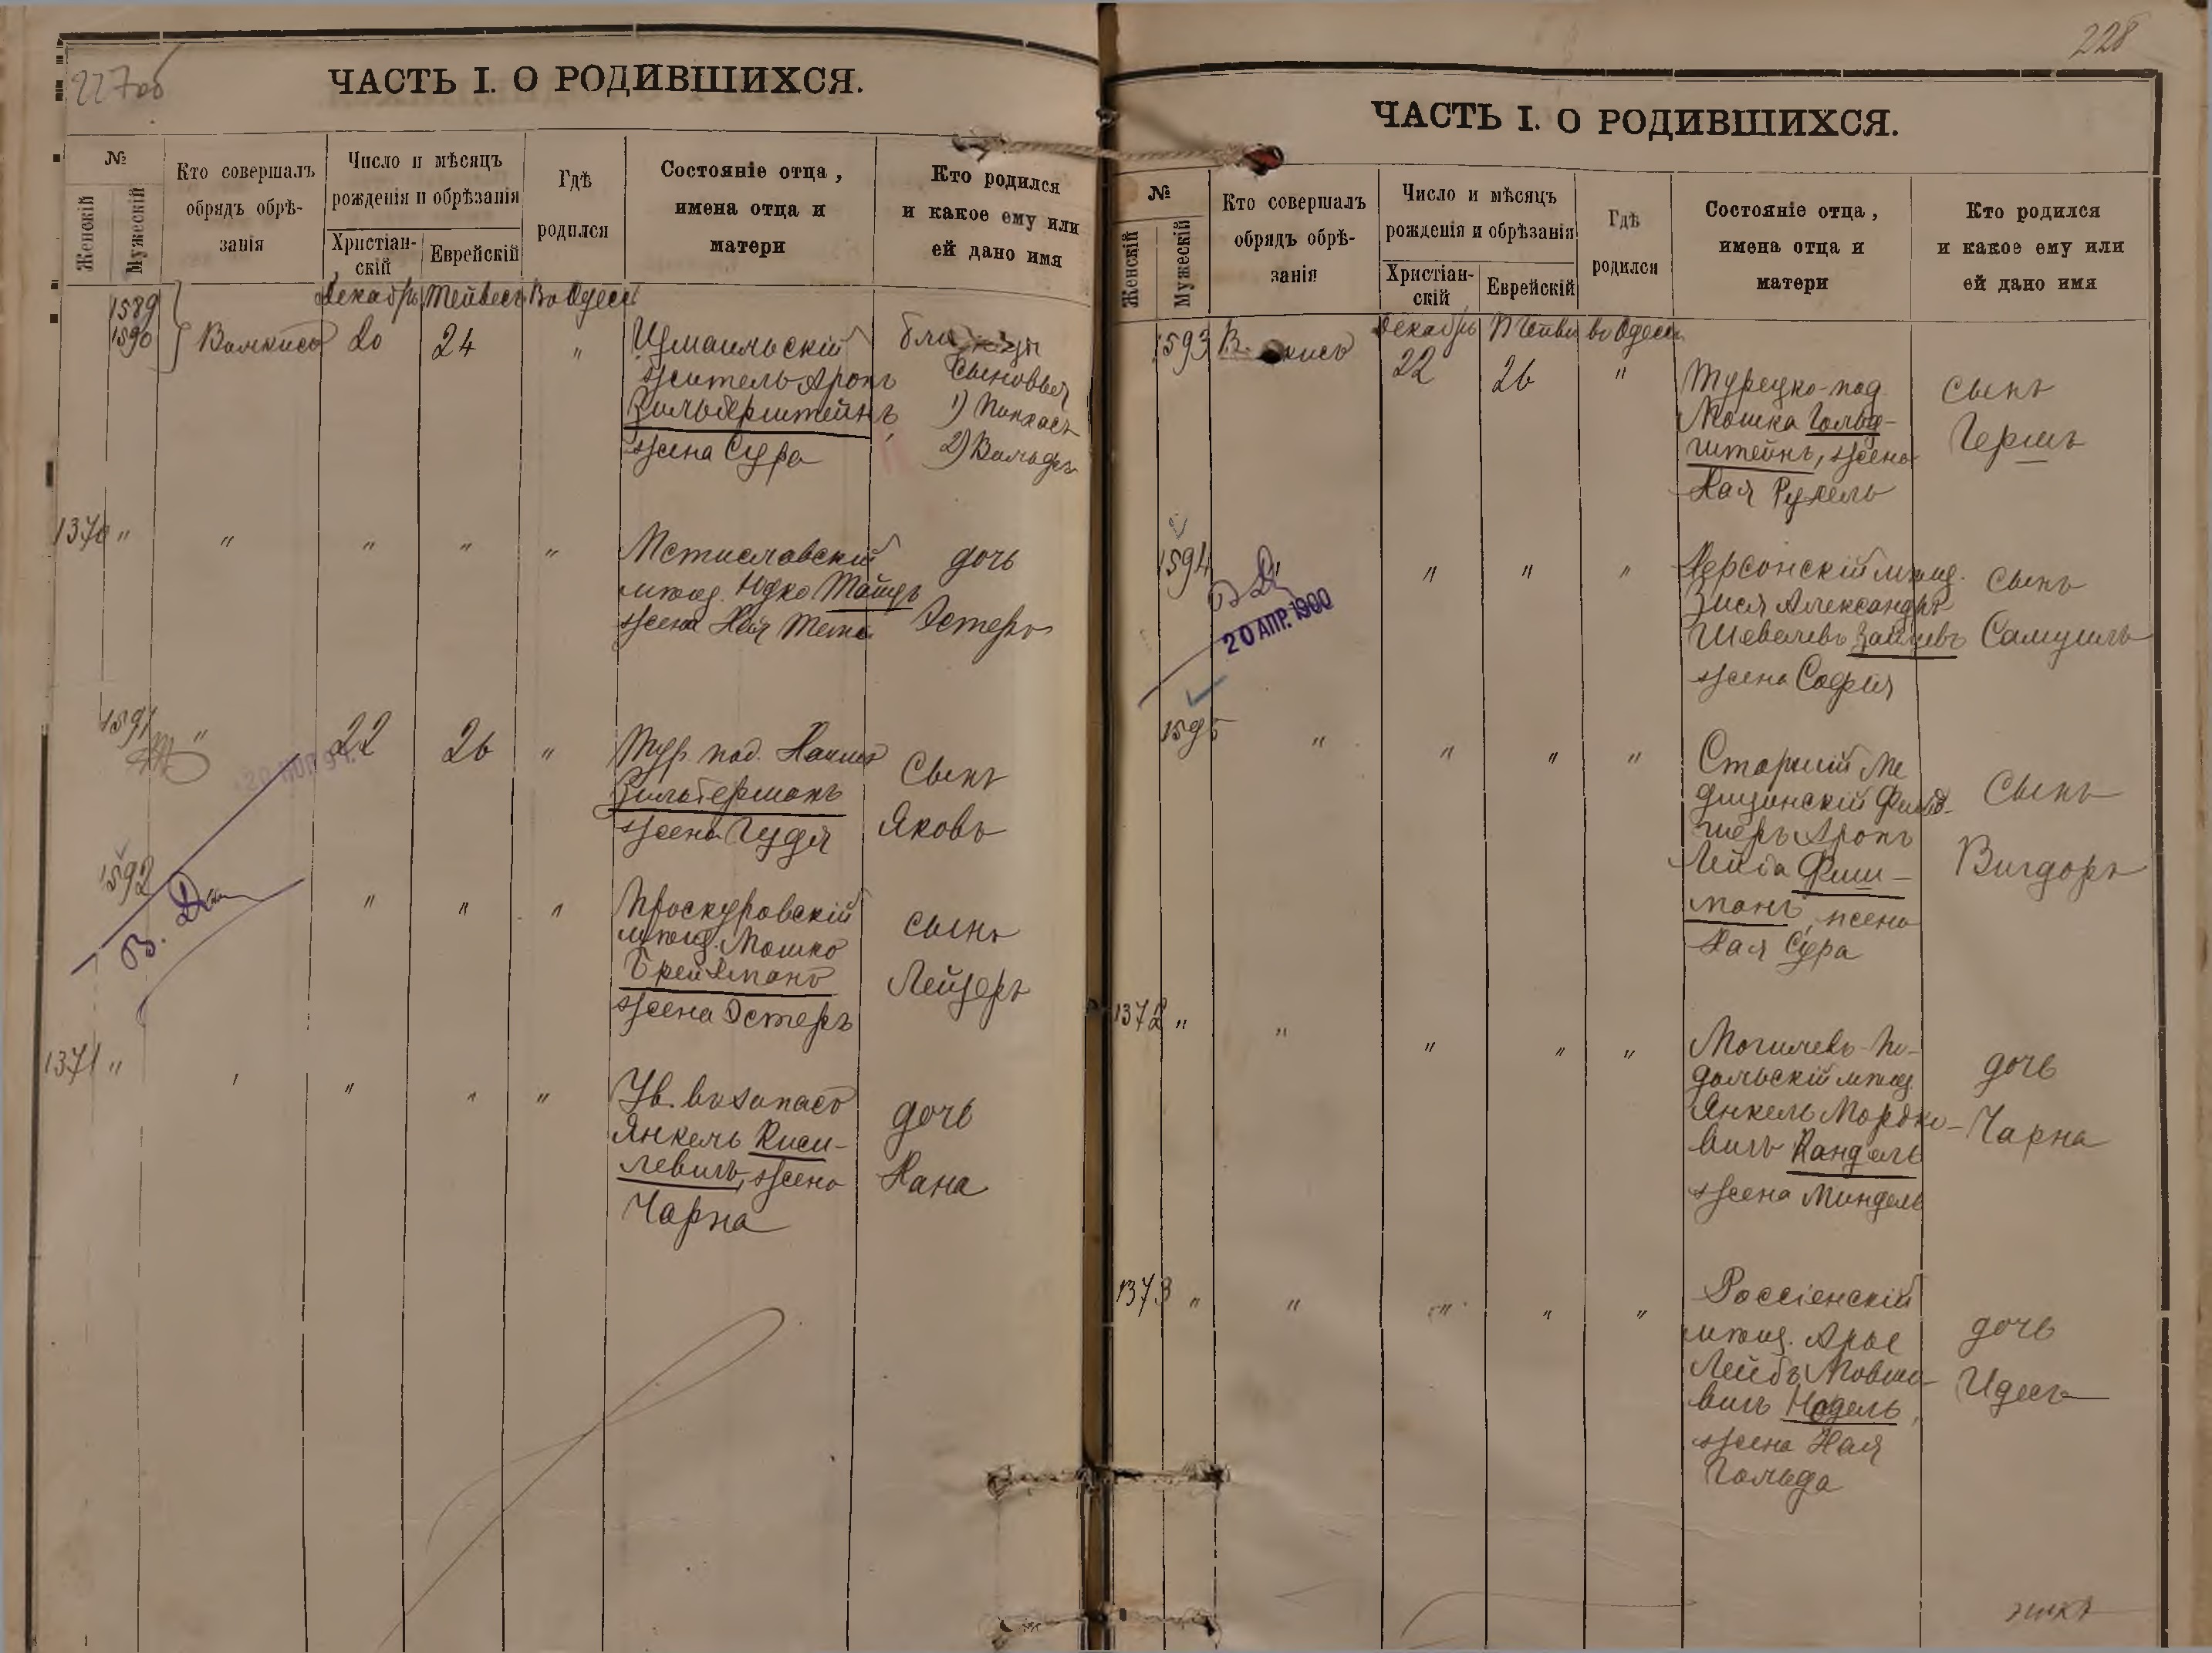 227об
ЧАСТЬ I. О РОДИВШИХСЯ.
№
Женскій
Мужескій
Кто совершалъ
обрядъ обрѣ-
занія
Число и мѣсяцъ
рожденія и обрѣзанія
Христіан-
скій
Еврейскій
Гдѣ
родился
Состояніе отца,
имена отца и
матери
Кто родился
и какое ему или
ей дано имя
Декабрь Тейвесъ Въ Одессѣ
1589
1590
20
24
"
житель Аронъ
Зильберштейнъ
жена Сура
Сыновья
1) Пинхасъ
2) Вольфъ
1370 " " " " "
Мстиславскій
мѣщ. Юдко Тайцъ
жена Хая
дочь
Эстеръ
1591 " 22 26 "
Тур. под.
Зильберманъ
жена Гудя
Сынъ
Яковъ
1592
" " "
Проскуровскій
мѣщ. Мошко
жена Эстеръ
сынъ
Лейзеръ
1371 " " " " "
Янкель Киси-
левичъ, жена
Чарна
дочь
Хана
228
ЧАСТЬ I. О РОДИВШИХСЯ.
№
Женскій
Мужескій
Кто совершалъ
обрядъ обрѣ-
занія
Число и мѣсяцъ
рожденія и обрѣзанія
Христіан-
скій
Еврейскій
Гдѣ
родился
Состояніе отца,
имена отца и
матери
Кто родился
и какое ему или
ей дано имя
Декабрь
1593
22
26
"
Турецко-под
Мошка Гольд-
штейнъ, жена
Хая Рухель
сынъ
Гершъ
1594
20 АПР. 1900
" " "
Херсонскій мѣщ.
Зися Александръ
Шевелевъ Зайцевъ
жена Софія
сынъ
Самуилъ
1595 " " " "
Старшій Ме
дицинскій Фельд-
шеръ Аронъ
Лейба Фиш-
манъ, жена
Хая Сура
Сынъ
Вигдоръ
1372 " " " " "
Могилевъ-По-
дольскій мѣщ.
Янкель Мордко-
вичъ Кандель
жена Миндель
дочь
Чарна
1373 " " " " "
Россіенскій
мѣщ. Арье
Лейбъ Мовшо-
вичъ Нодель,
жена Хая
Гольда
дочь
Идесъ